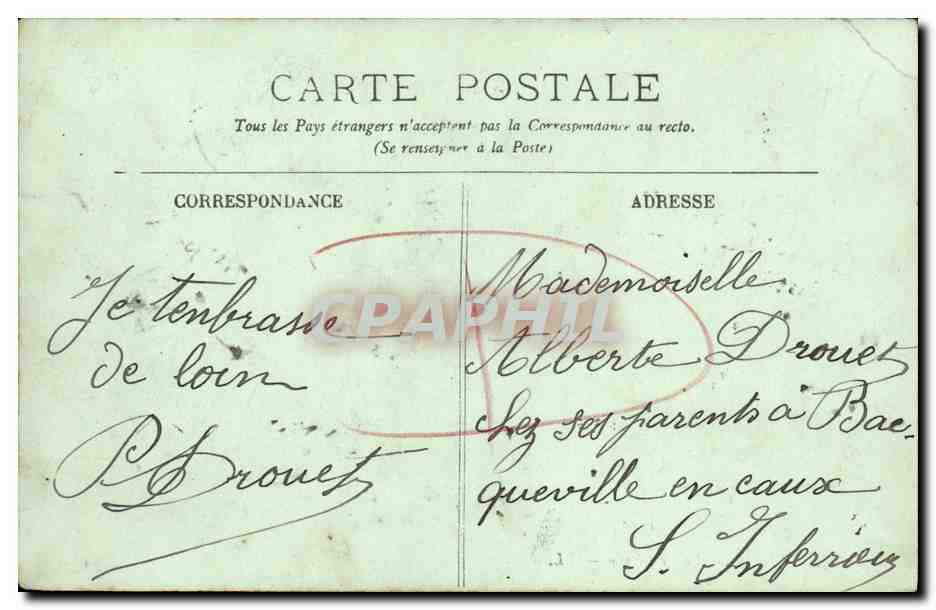 CARTE POSTALE
Tous les Pays étrangers n'acceptent pas la Correspondance au recto.
(Se renseigner à la Poste)
CORRESPONDANCE
Je tenbrasse
de loin
P Drouet
ADRESSE
Mademoiselle
Alberte Drouet
chez ses parents à Bac-
queville en caux
S. Inferrieu
CPAPHIL